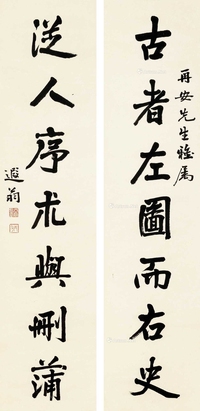 古者左圖而右史
再安先生雅属
從人序朮與刪蒲
遐翁